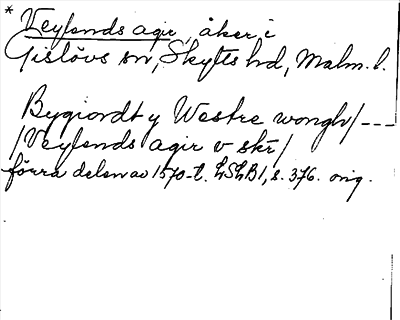 * Veylends agir, åker i
Gislövs sn, Skytts hd, Malm. l.
Bygiordt y Westre wongh/---
/Veylends agir v skr/
förra delen av 1570-t. LSLB1, s. 376. orig.